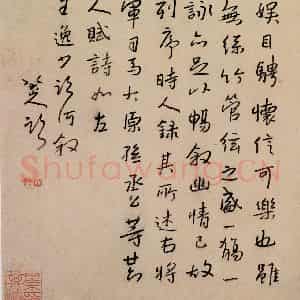 娛目騁懷信可樂也雖
無絲竹管弦之盛一觴一
詠亦足以暢敘幽情已故
列序時人錄其所述右將
軍司馬太原孫丞公等廿
人賦詩如左
王逸少臨河敘
Shufawang.CN